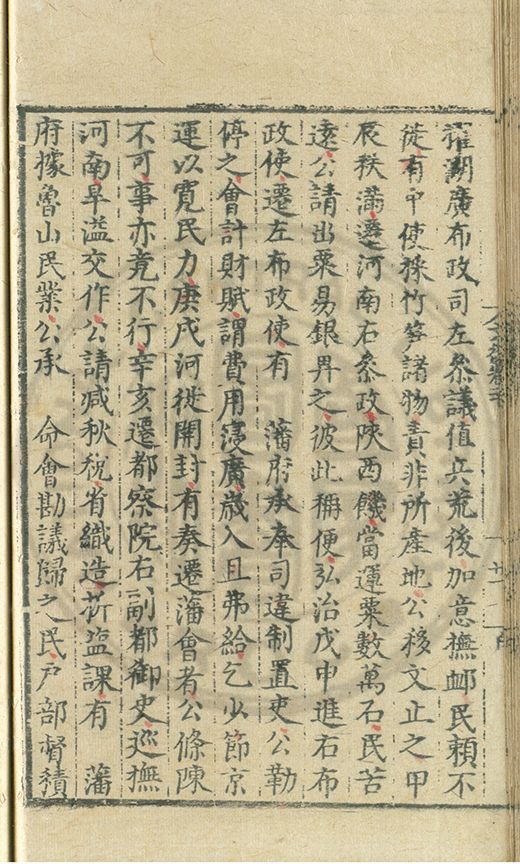 擢湖廣布政司左叅議值兵荒後加意撫邺民賴不
徙有中使採竹筭諸物責非所產地公移文止之甲
辰秩滿遷河南右叅政陜西饑當運粟數萬石民苦
遠公請出粟易銀畀之彼此稱便弘治戊申進右布
政使遷左布政使有　藩府承奉司違制置吏公勒
停之會計財賦謂費用寖廣歲入且弗給乞少節京
運以寛民力庚戌河徙開封有奏遷藩會者公條陳
不可事亦竟不行辛亥遷都察院右副都御史巡撫
河南旱溢交作公請減秋稅省織造折盐課有　藩
府據魯山民業公承　命會勘議歸之民戶部督積